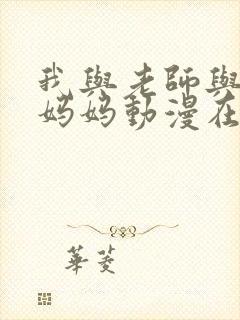 我與老師與
媽媽動漫在
華菱